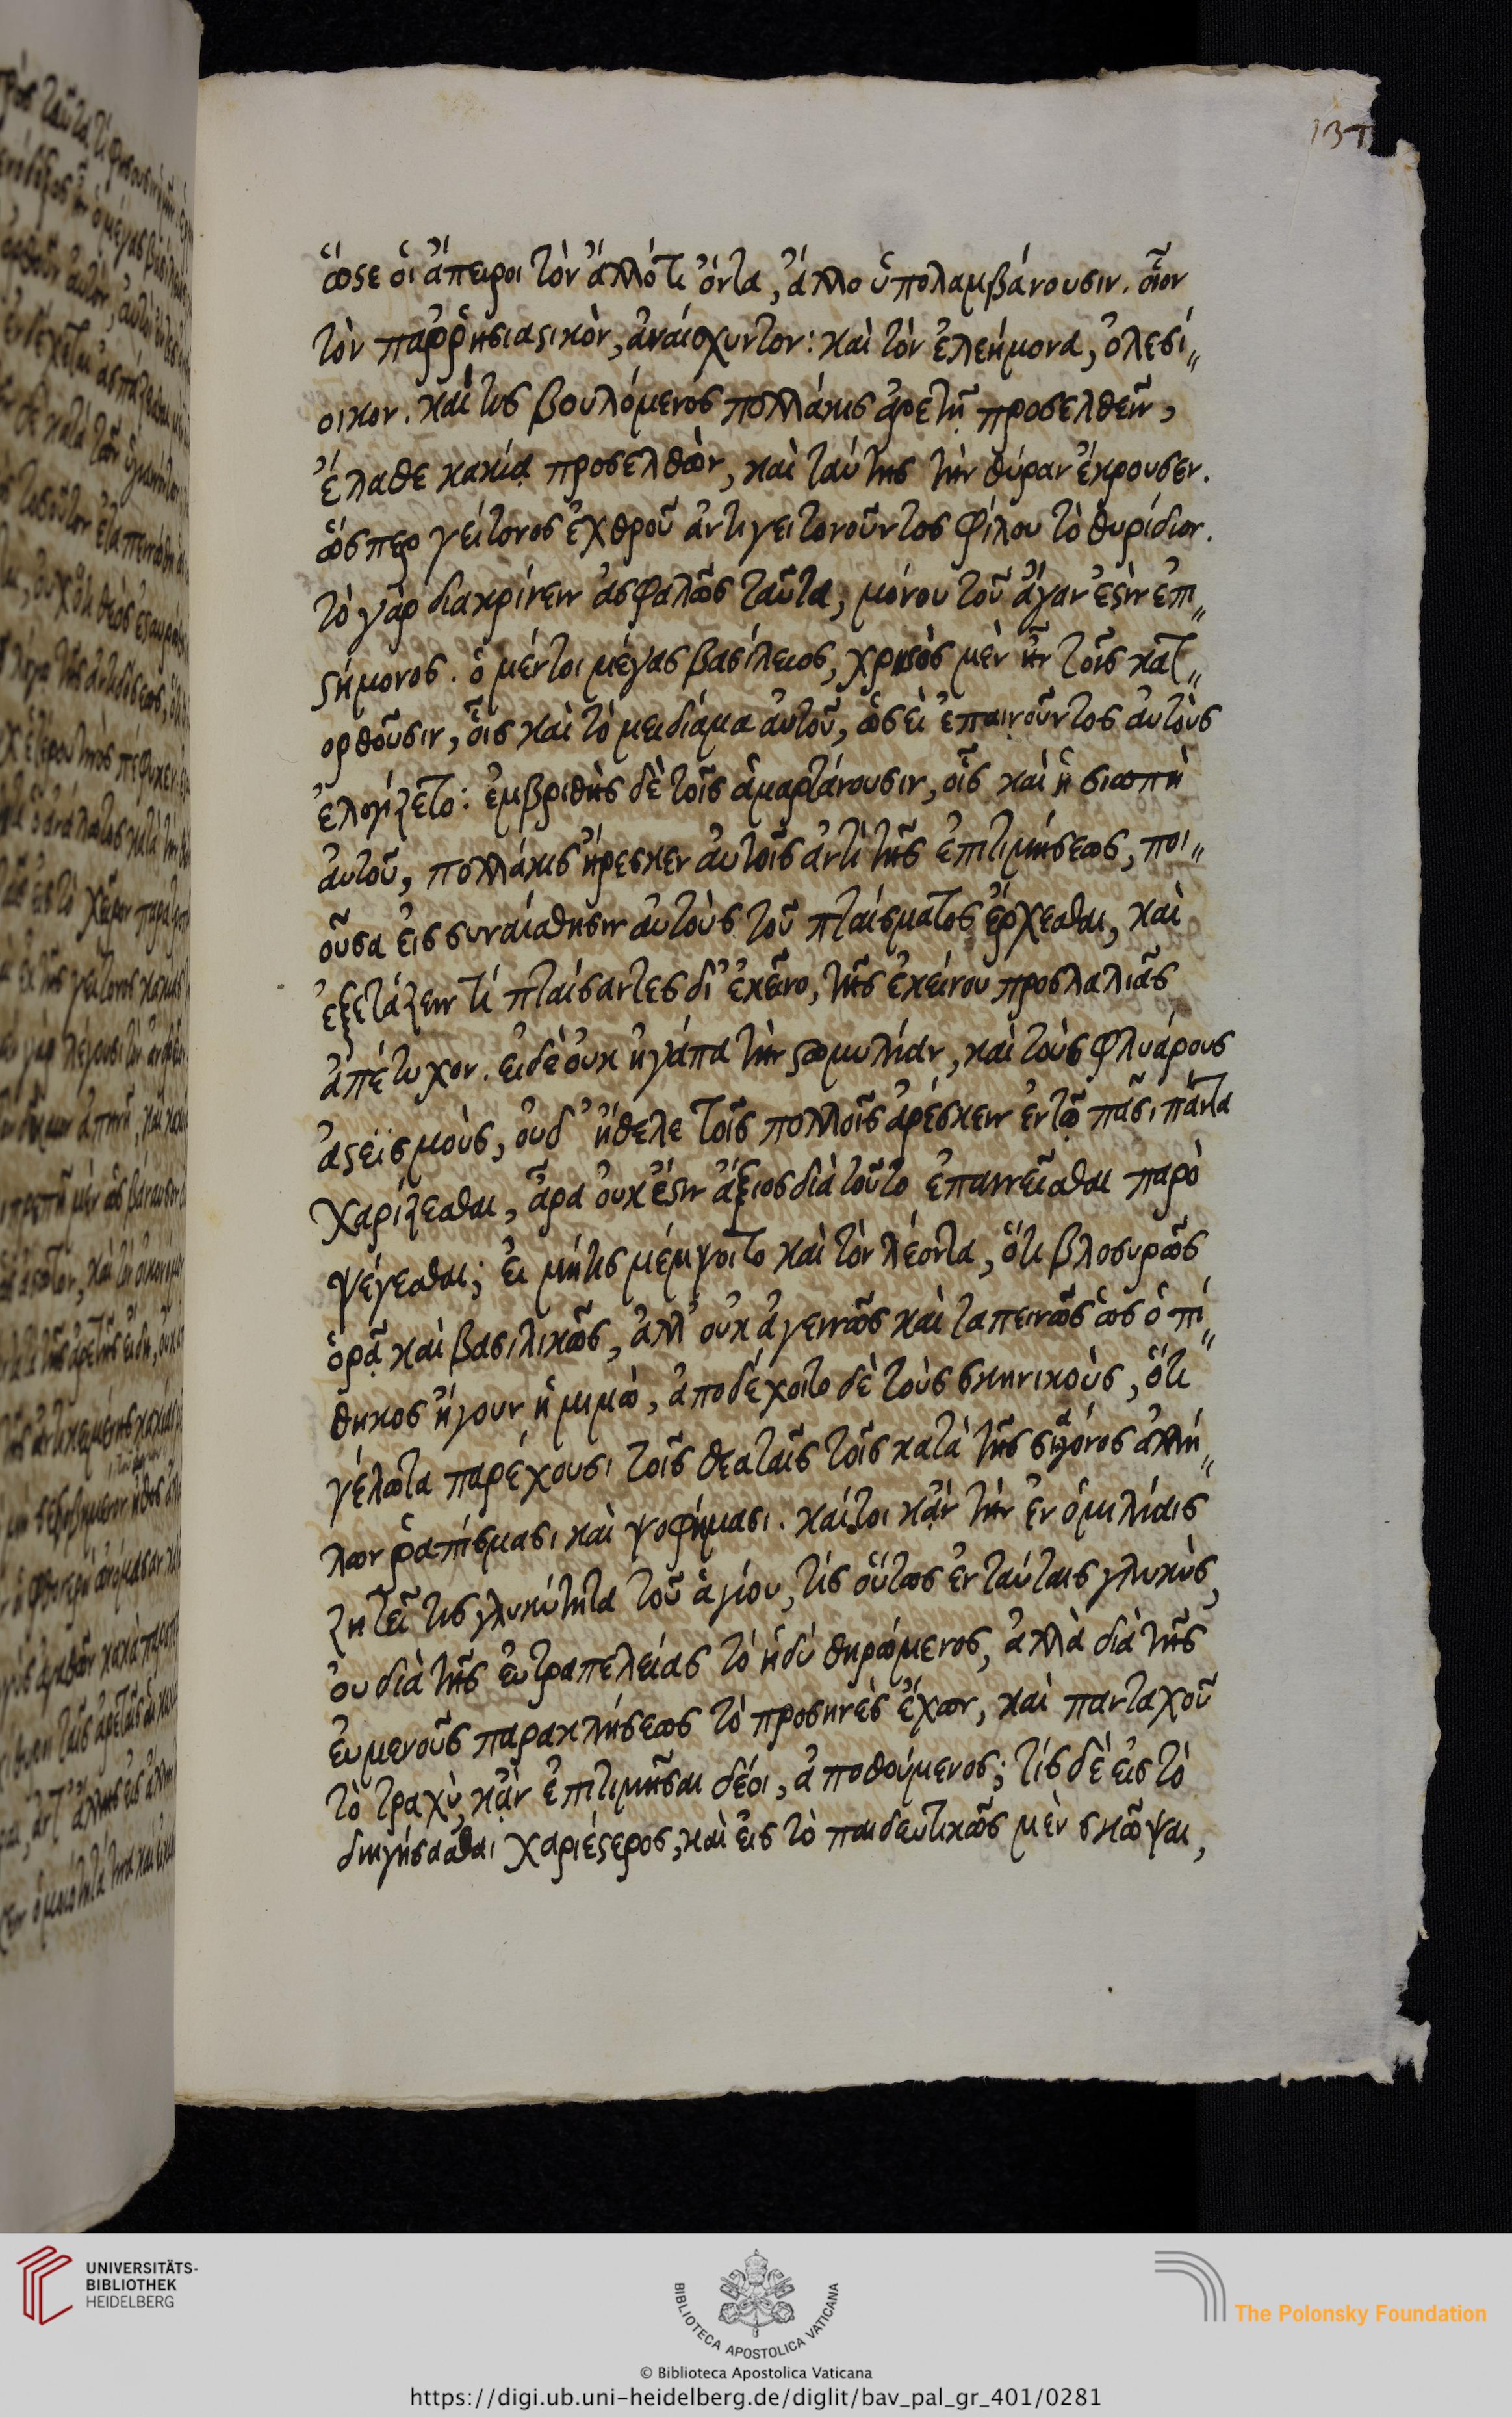 137
ὥστε ὁι ἄπειροι τὸν ἄλλότι ὄντα, ἄλλο ὑπολαμβάνουσιν. οἷον
τὸν παῤῥησιαστικὸν, ἀναίσχυντον: καὶ τὸν ἐλεήμονα, ὀλεσί„
οικον. καί τις βουλόμενος πολλάκις ἀρετῇ προσελθεῖν,
ἔλαθε κακίᾳ προσελθὼν, καὶ ταύτης τὴν θύραν ἔκρουσεν.
ὥσπερ γείτονος ἐχθροῦ ἀντιγειτονοῦντος φίλου τὸ θυρίδιον.
τὸ γὰρ διακρίνειν ἀσφαλῶς ταῦτα, μόνου τοῦ ἄγαν ἐστὶν ἐπι„
στήμονος. ὁ μέντοι μέγας βασίλειος, χρηστὸς μὲν ἦν τοῖς κατ„
ορθοῦσιν, οἷς καὶ τὸ μειδίαμα ἀυτοῦ, ὡσεὶ ἐπαινοῦντος ἀυτοὺς
ἐλογίζετο: ἐμβριθὴς δὲ τοῖς ἁμαρτάνουσιν, οἷς καὶ ἡ σιωπὴ
ἀυτοῦ, πολλάκις ἤρεσκεν ἀυτοῖς ἀντὶ τῆς ἐπιτιμήσεως, ποι„
οῦσα ἐις συναίσθησιν ἀυτοὺς τοῦ πταίσματος ἔρχεσθαι, καὶ
ἐξετάζειν τί πταίσαντες δι' ἐκεῖνο, τῆς ἐκείνου προσλαλιᾶς
ἀπέτυχον. ἐιδὲ ὀυκ ἠγάπα τὴν στωμυλίαν, καὶ τοὺς φλυάρους
ἀστεϊσμοὺς, ὀυδ' ἤθελε τοῖς πολλοῖς ἀρέσκειν ἐν τῷ πᾶσι πάντα
χαρίζεσθαι, ἆρα ὀυκ ἔστιν ἄξιος διὰ τοῦτο ἐπαινεῖσθαι παρὸ
ψέγεσθαι; ἐι μήτις μέμψοιτο καὶ τὸν λέοντα, ὅτι βλοσυρῶς
ὁρᾷ καὶ βασιλικῶς, ἀλλ' ὀυκ ἀγεννῶς καὶ ταπεινῶς ὡς ὁ πί„
θηκος ἤγουν ἡ μιμὼ, ἀποδέχοιτο δὲ τοὺς σκηνικοὺς, ὅτι
γέλωτα παρέχουσι τοῖς θεαταῖς τοῖς κατὰ τῆς σιαγόνος ἀλλή„
λων ῥαπίσμασι καὶ ψοφήμασι. καίτοι κᾂν τὴν ἐν ὁμιλίαις
ζητεῖ τις γλυκύτητα τοῦ ἁγίου, τίς οὕτως ἐν ταύταις γλυκὺς,
ὀυ διὰ τῆς ἐυτραπελείας τὸ ἡδὺ θηρώμενος, ἀλλὰ διὰ τῆς
ἐυμενοῦς παρακλήσεως τὸ προσηνὲς ἔχων, καὶ πανταχοῦ
τὸ τραχὺ, κᾂν ἐπιτιμῆσαι δέοι, ἀποθούμενος; τίς δὲ ἐις τὸ
διηγήσασθαι χαριέστερος, καὶ ἐις τὸ παιδευτικῶς μὲν σκῶψαι,
UNIVERSITÄTS-
BIBLIOTHEK
HEIDELBERG
BIBLIOTECA APOSTOLICA VATICANA
The Polonsky Foundation
© Biblioteca Apostolica Vaticana
https://digi.ub.uni-heidelberg.de/diglit/bav_pal_gr_401/0281